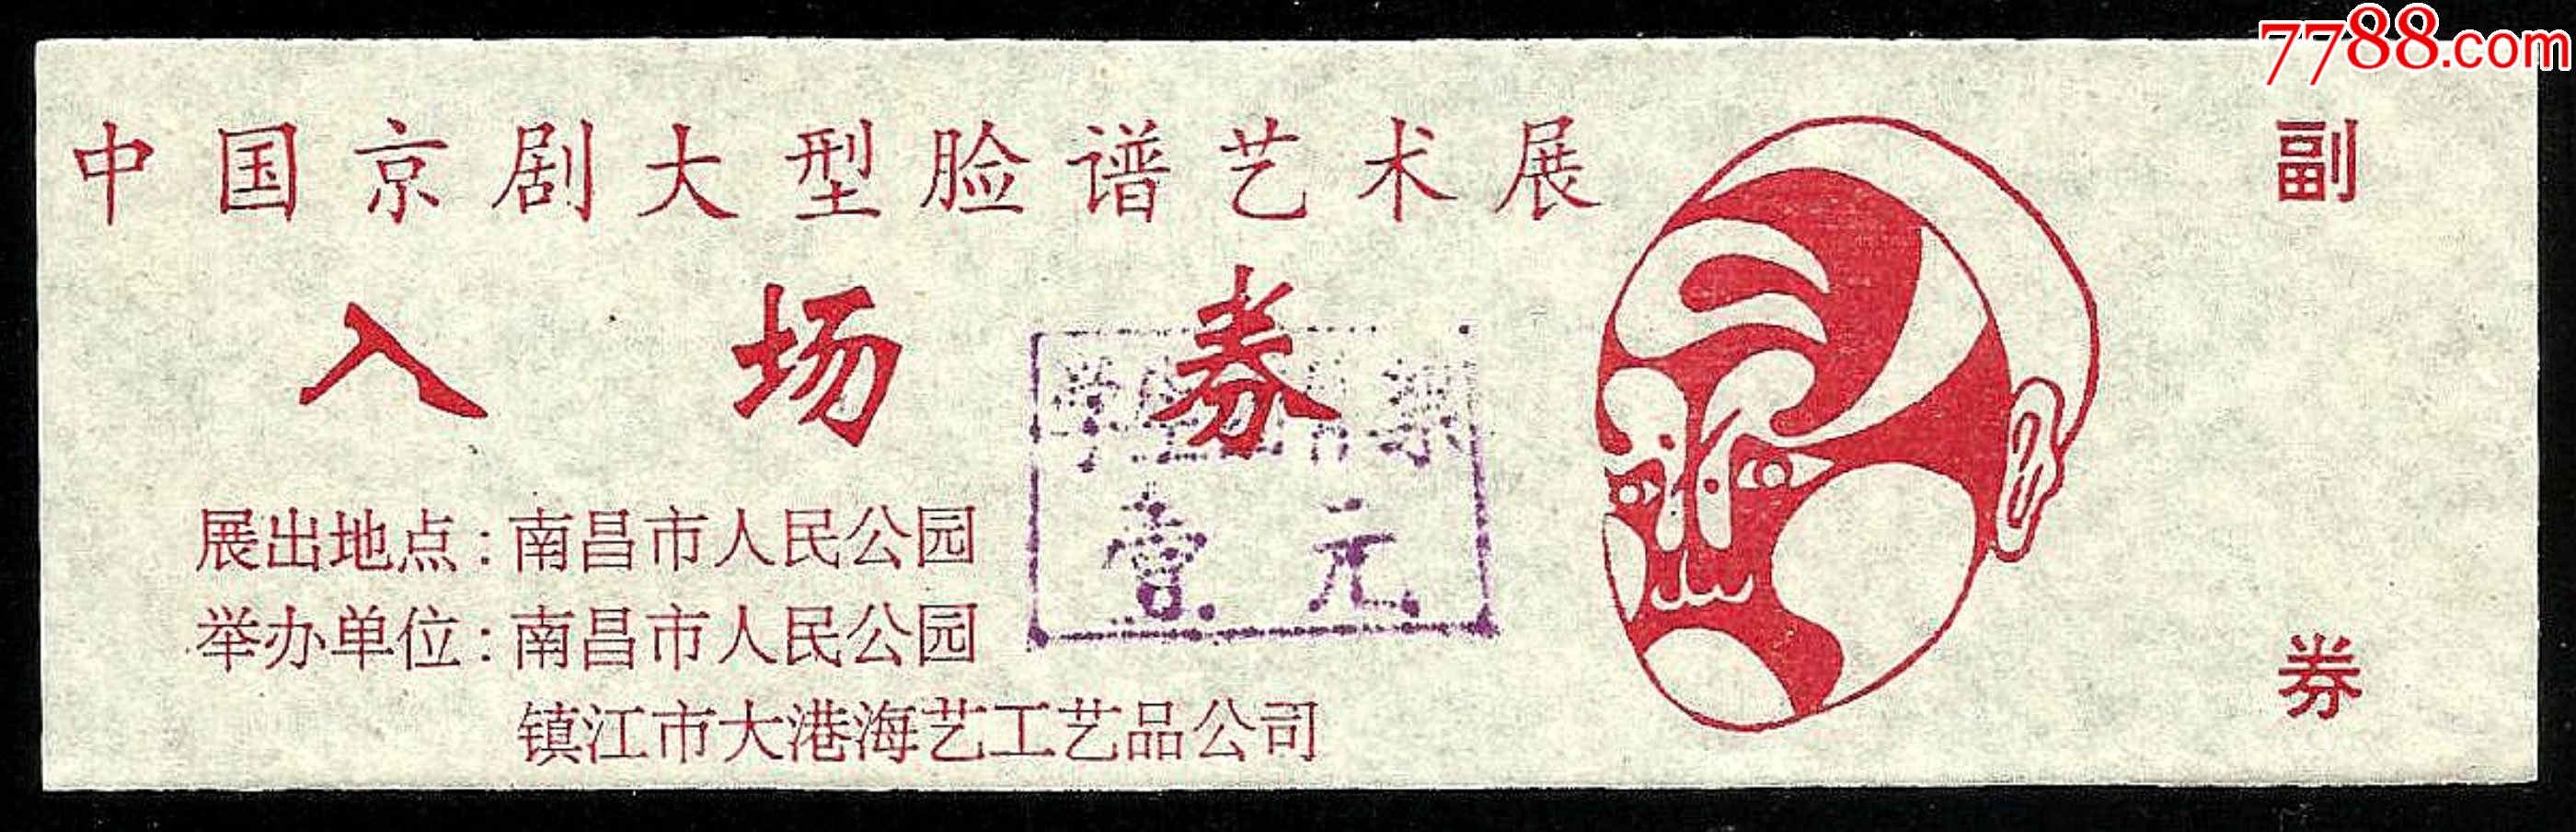 7788.com
中国京剧大型脸谱艺术展
副券
入场券
壹元
展出地点：南昌市人民公园
举办单位：南昌市人民公园
镇江市大港海艺工艺品公司